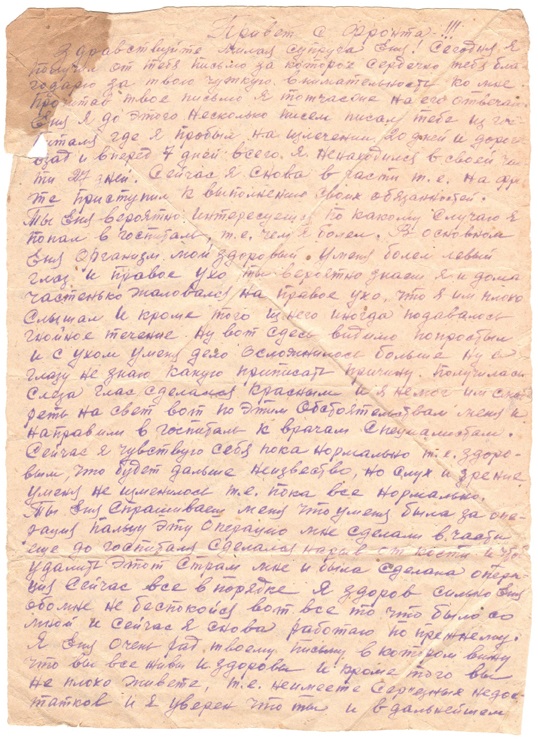 Привет с Фронта!!!
Здравствуйте милая супруга Еня! Сегодня я
получил от тебя письмо за которое сердечно тебя бла-
годарю за твою чуткую внимательность ко мне.
Прочитав твое письмо я тотчас же на его отвечаю
Еня я до этого несколько писем писал тебе из го-
спиталя где я пробыл на излечении 20 дней и дорога
взад и вперед 7 дней всего я ненаходился в своей ча-
сти 27 дней. Сейчас я снова в части т.е. на фро-
те приступил к выполнению своих обязанностей.
Ты Еня вероятно интересуешся по какому случаю я
попал в госпиталь, т.е. чем я болел. В основном
Еня организм мой здоровый. У меня болел левый
глаз и правое ухо ты вероятно знаеш я и дома
частенько жаловался на правое ухо, что я им плохо
слышал и кроме того из него иногда подавалось
гнойное течение. Ну вот здесь видимо попростыл
и с ухом уменя дело осложнилось больше ну а
глазу не знаю какую приписать причину. Получилась
слеза глас сделался красным и я немог им смот-
реть на свет вот по этим обстоятельствам меня и
направили в госпиталь к врачам специалистам.
Сейчас я чувствую себя пока нормально т.е. здоро-
вым, что будет дальше неизвество, но слух и зрение
уменя не изменилось т.е. пока все нормально.
Ты Еня спрашиваеш меня что уменя была за опе-
рация пальцу эту операцию мне сделали в части
еще до госпиталя сделался нарыв от кости и
удалить этот мне и была сделана опера-
ция сейчас все в порядке я здоров сильно Еня
обо мне не беспокойся вот все то что было со
мной и сейчас я снова работаю по прежнему.
Я Еня очень рад твоему письму в котором вижу
что вы все живы и здоровы и кроме того вы
не плохо живете, т.е. неимеете серьезных недос-
татков и я уверен что ты и в дальнейшем